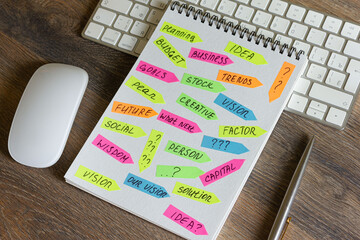 Planning
IDEA
BUDGET
BUSINESS
?
?
?
GOALS
STOCK
TRENDS
Plan
CREATIVE
VISION
FUTURE
WHAT NEW
FACTOR
SOCIAL
? ? ?
???
WISDOM
PERSON
CAPITAL
..?
VISION
OUR VISION
SOLUTION
IDEA?